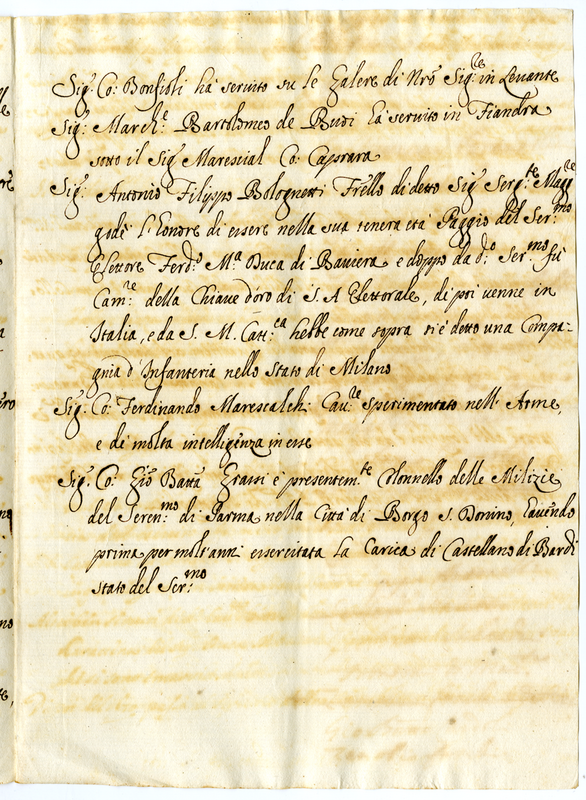 Sig.r Co: Bonfioli ha servito su le Galere di Nro Sig.re in Levante
Sig.r March.e Bartolomeo de Buoi ha servito in Fiandra
sotto il Sig Marescial Co: Caprara
Sig.r Antonio Filippo Bolognetti Frello di detto Sig Serg.te Magg.re
godè l'honore di essere nella sua tenera età Paggio del Ser.mo
Elettore Ferd.o M.a Duca di Baviera e doppo da d.o Ser.mo fù
Cam.re della Chiave d'oro di S. A Elettorale, di poi venne in
Italia, e da S. M. Catt.ca hebbe come sopra si è detto una Compa-
gnia d'Infanteria nello Stato di Milano
Sig.r Co: Ferdinando Marescalchi Cav.re sperimentato nell'Arme,
e de molta intelligenza in esse
Sig.r Co: Gio Batta Grassi è presentem.te Colonnello delle Milizie
del Seren.mo di Parma nella Città di Borgo S. Donino, havendo
prima per molt'anni essercitata la Carica di Castellano di Bardi
stato del Ser.mo